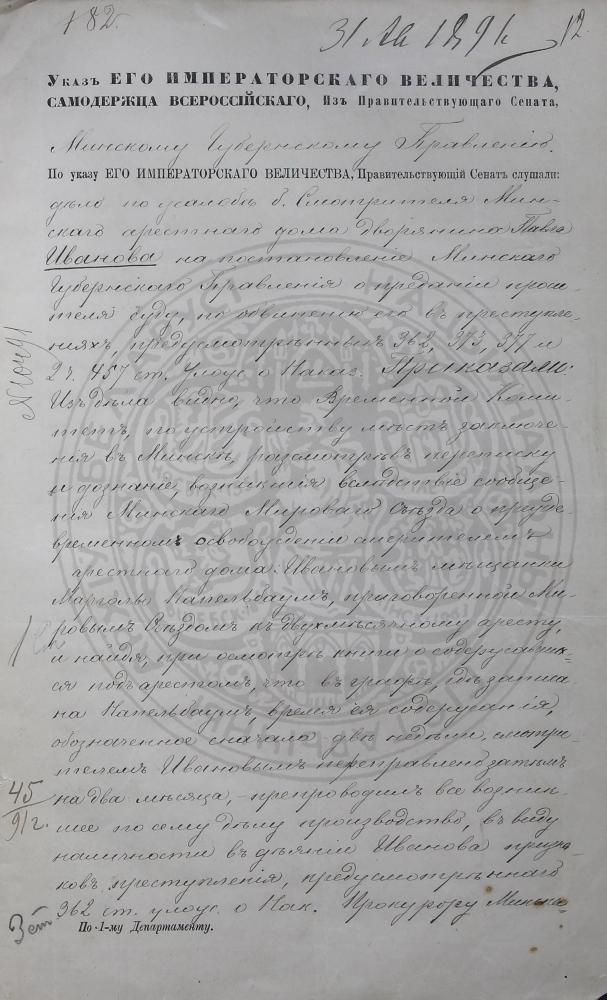 182.
31 Авг 1891 г.
12.
Указъ ЕГО ИМПЕРАТОРСКАГО ВЕЛИЧЕСТВА,
САМОДЕРЖЦА ВСЕРОССІЙСКАГО, Изъ Правительствующаго Сената,
Минскому Губернскому Правленію.
По указу ЕГО ИМПЕРАТОРСКАГО ВЕЛИЧЕСТВА, Правительствующій Сенатъ слушали:
дѣло по жалобѣ б. Смотрителя Мин-
скаго арестнаго дома дворянина Павла
Иванова на постановленіе Минскаго
Губернскаго Правленія о преданіи проси-
теля суду, по обвиненію его въ преступле-
ніяхъ, предусмотрѣнныхъ 362, 373, 377 и
2 ч. 457 ст. Улож. о Наказ. Приказали:
Изъ дѣла видно, что Временной Коми-
тетъ, по устройству мѣстъ заключе-
нія въ Минскѣ, разсмотрѣвъ переписку
и дознаніе, возникшія вслѣдствіе сообще-
нія Минскаго Мироваго Съѣзда о прежде-
временномъ освобожденіи смотрителемъ
арестнаго дома Ивановымъ мѣщанки
Капельбаумъ, приговоренной Ми-
ровымъ Съѣздомъ къ двухмѣсячному аресту,
и найдя, при осмотрѣ книги о содержавших-
ся подъ арестомъ, что въ графѣ, гдѣ записа-
на Капельбаумъ, время ея содержанія,
обозначенное сначала двѣ недѣли, смотри-
телемъ Ивановымъ переправлено затѣмъ
на два мѣсяца, - препроводилъ все возник-
шее по сему дѣлу производство, въ виду
наличности въ дѣяніи Иванова призна-
ковъ преступленія, предусмотрѣннаго
362 ст. улож. о Нак. Прокурору Минска-
По 1-му Департаменту.
45
91 г.
3 ст